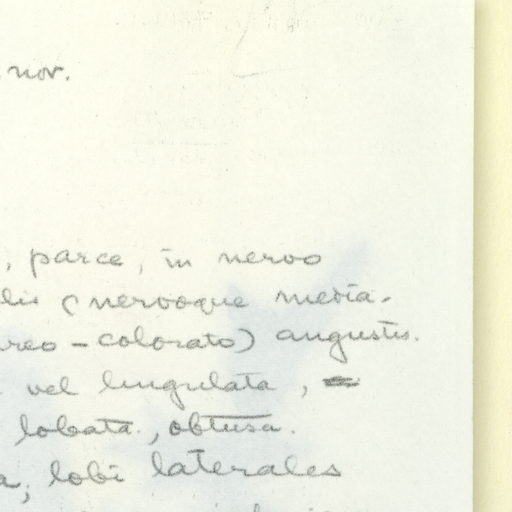 nov.
, parce, in nervo
lis (nervoque media-
reo-colorato) angustis.
vel lingulata,
lobata, obtusa.
a, lobi laterales